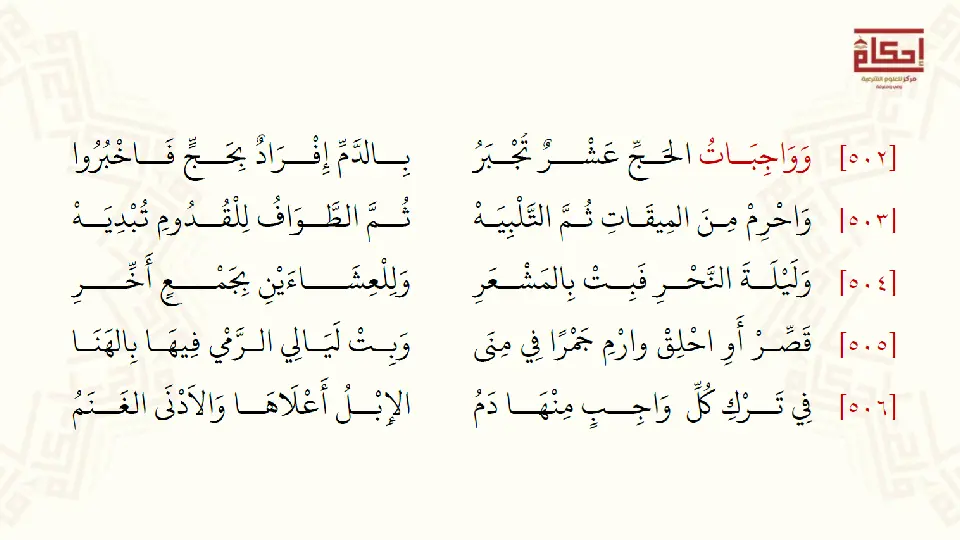 إحكام
مركز للعلوم الشرعية
[٥٠٢] وَوَاجِبَاتُ الحَجِّ عَشْرٌ تُجْبَرُ بِالدَّمِّ إِفْرَادٌ بِحَجٍّ فَاخْبُرُوا
[٥٠٣] وَاحْرِمْ مِنَ المِيقَاتِ ثُمَّ التَّلْبِيَهْ ثُمَّ الطَّوَافُ لِلْقُدُومِ تُبْدِيَهْ
[٥٠٤] وَلَيْلَةَ النَّحْرِ فَبِتْ بِالمَشْعَرِ وَلِلْعِشَاءَيْنِ بِجَمْعٍ أَخِّرِ
[٥٠٥] قَصِّرْ أَوِ احْلِقْ وارْمِ جَمْرًا فِي مِنَى وَبِتْ لَيَالِي الرَّمْي فِيهَا بِالهَنَا
[٥٠٦] فِي تَرْكِ كُلِّ وَاجِبٍ مِنْهَا دَمُ الإِبْلُ أَعْلَاهَا وَالاَدْنَى الغَنَمُ